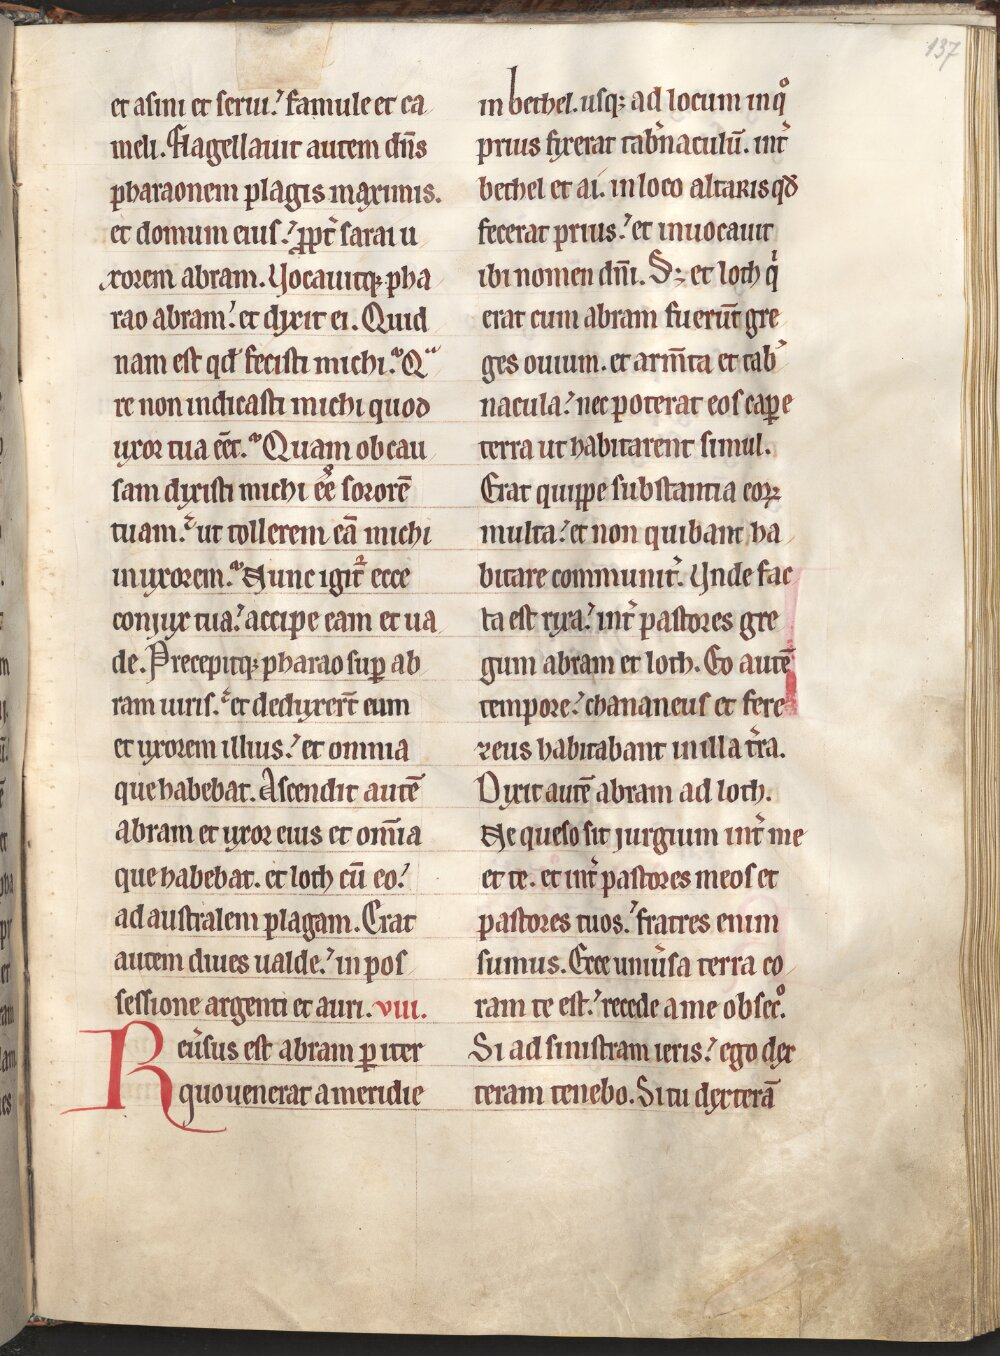 137
et asini et serui. famule et ca
meli. Flagellauit autem dn̄s
pharaonem plagis maximis.
et domum eius. ꝓpt̄ sarai u
xorem abram. Vocauitqꝫ pha
rao abram. et dixit ei. Quid
nam est qd̓ fecisti michi. Qᵃ
re non indicasti michi quod
uxor tua eēt. Quam ob cau
sam dixisti michi eē sororē
tuam. ut tollerem eā michi
in uxorem. Nunc igit̄ ecce
conjux tua. accipe eam et ua
de. Precepitqꝫ pharao suꝑ ab
ram uiris. et deduxert̄ eum
et uxorem illius. et omnia
que habebat. Ascendit autē
abram et uxor eius et omīa
que habebat. et loth cū eo.
ad australem plagam. Erat
autem diues ualde. in pos
sessione argenti et auri. viii.
Reu̓sus est abram ꝑ iter
quo uenerat a meridie
in bethel. usqꝫ ad locum in qͦ
prius fixerat tab̓naculū. int̓
bethel et ai. in loco altaris qd̓
fecerat prius. et inuocauit
ibi nomen dn̄i. Sꝫ et loth qͥ
erat cum abram fuerūt gre
ges ouium. et arm̄ta et tab̓
nacula. nec poterat eos caꝑe
terra ut habitarent simul.
Erat quippe substantia eoꝝ
multa. et non quibant ha
bitare communit̓. Unde fac
ta est rixa. int̓ pastores gre
gum abram et loth. Eo autē
tempore. chananeus et fere
zeus habitabant in illa t̓ra.
Dixit autē abram ad loth.
Ne queso sit jurgium int̓ me
et te. et int̓ pastores meos et
pastores tuos. fratres enim
sumus. Ecce uniu̓sa terra co
ram te est. recede a me obsecͦ.
Si ad sinistram ieris. ego dex
teram tenebo. Si tu dexterā